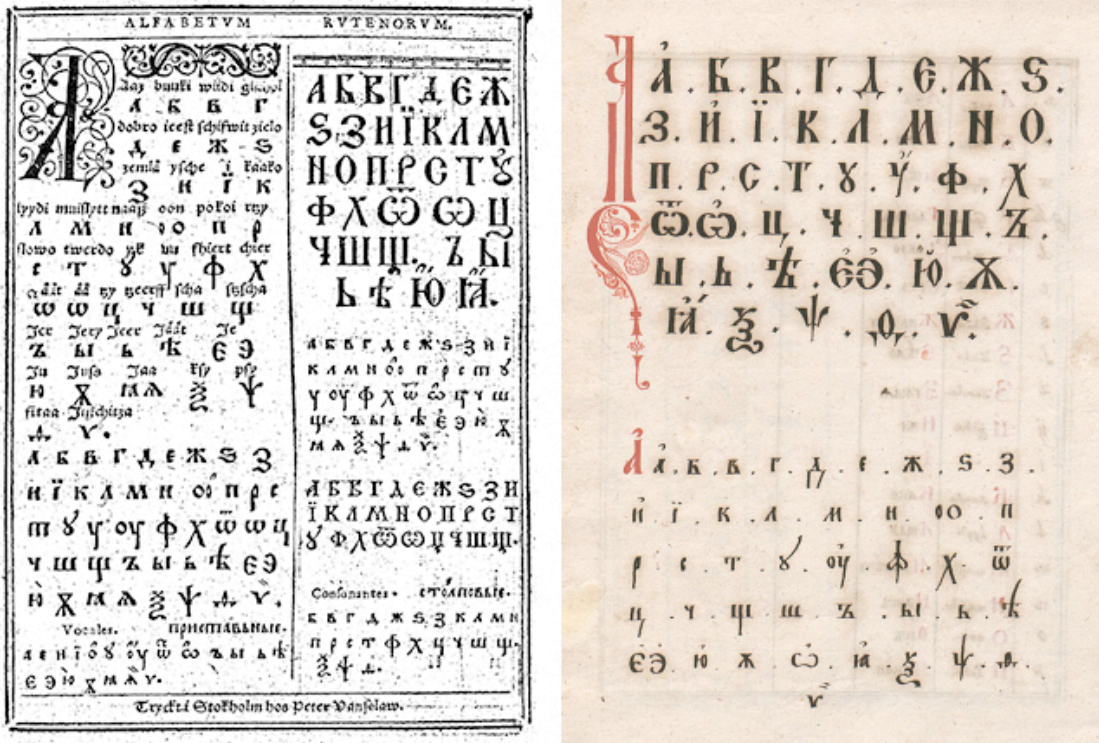 ALFABETVM RVTENORVM.
Aaz buuki wiidi
А Б В Г
dobro ieest schifwit zielo
Д Е Ж Ѕ
zemlä ysche i kaako
З И Ї К
lyydi naasz oon pokoi rtzy
Л М Н О П Р
slowo twerdo yk uu fhiert chier
С Т Ꙋ У Ф Х
tzy tzeerff scha
Ѿ Ѡ Ц Ч Ш Щ
Jer Jery Jeer Jäät Je
Ъ Ы Ь Ѣ Є Э
Ju Jusz Jaa ksy psy
Ю Ѫ Ꙗ Ѧ Ѯ Ѱ
fitaa
Ѳ Ѵ.
А Б В Г Д Е Ж Ѕ З
И Ї К Л М Н О П Р С
Т Ꙋ У ОУ Ф Х Ѿ Ѡ Ц
Ч Ш Щ Ъ Ы Ь Ѣ Є Э
Ю Ѫ Ꙗ Ѧ Ѯ Ѱ Ѳ Ѵ.
Vocales. приставные.
а е и ї о ꙋ оу ѿ ѡ ъ ы ь ѣ
є э ю ѫ ꙗ ѧ ѵ.
А Б В Г Д Е Ж
Ѕ З И Ї К Л М
Н О П Р С Т Ꙋ
Ф Х Ѿ Ѡ Ц
Ч Ш Щ. Ъ Ы
Ь Ѣ Ю Ꙗ.
а б в г д е ж ѕ з и ї
к л м н о п р с т ꙋ
у оу ф х ѿ ѡ ц ч ш
щ. ъ ы ь ѣ є э ю ѫ
ꙗ ѧ ѯ ѱ ѳ ѵ.
А Б В Г Д Е Ж Ѕ З И
Ї К Л М Н О П Р С Т
Ꙋ Ф Х Ѿ Ѡ Ц Ч Ш Щ.
Consonantes. столповые.
б в г д ж ѕ з к л м н
п р с т ф х ц ч ш щ.
ѯ ѱ ѳ.
Tryckt i Stokholm hos Peter Vanselaw.
А . Б . В . Г . Д . Е . Ж . Ѕ .
З . И . Ї . К . Л . М . Н . О .
П . Р . С . Т . Ꙋ . У . Ф . Х
Ѿ . Ѡ . Ц . Ч . Ш . Щ . Ъ .
Ы . Ь . Ѣ . Є Э . Ю . Ѫ .
Ꙗ . Ѯ . Ѱ . Ѳ . Ѵ .
А а . б . в . г . д . е . ж . ѕ . з .
и . ї . к . л . м . н . о о . п
р . с . т . ꙋ . оу . ф . х . ѿ
ц . ч . щ . ш . ъ . ы . ь . ѣ
є э . ю . ѫ . ѡ . ꙗ . ѯ . ѱ . ѳ .
ѵ